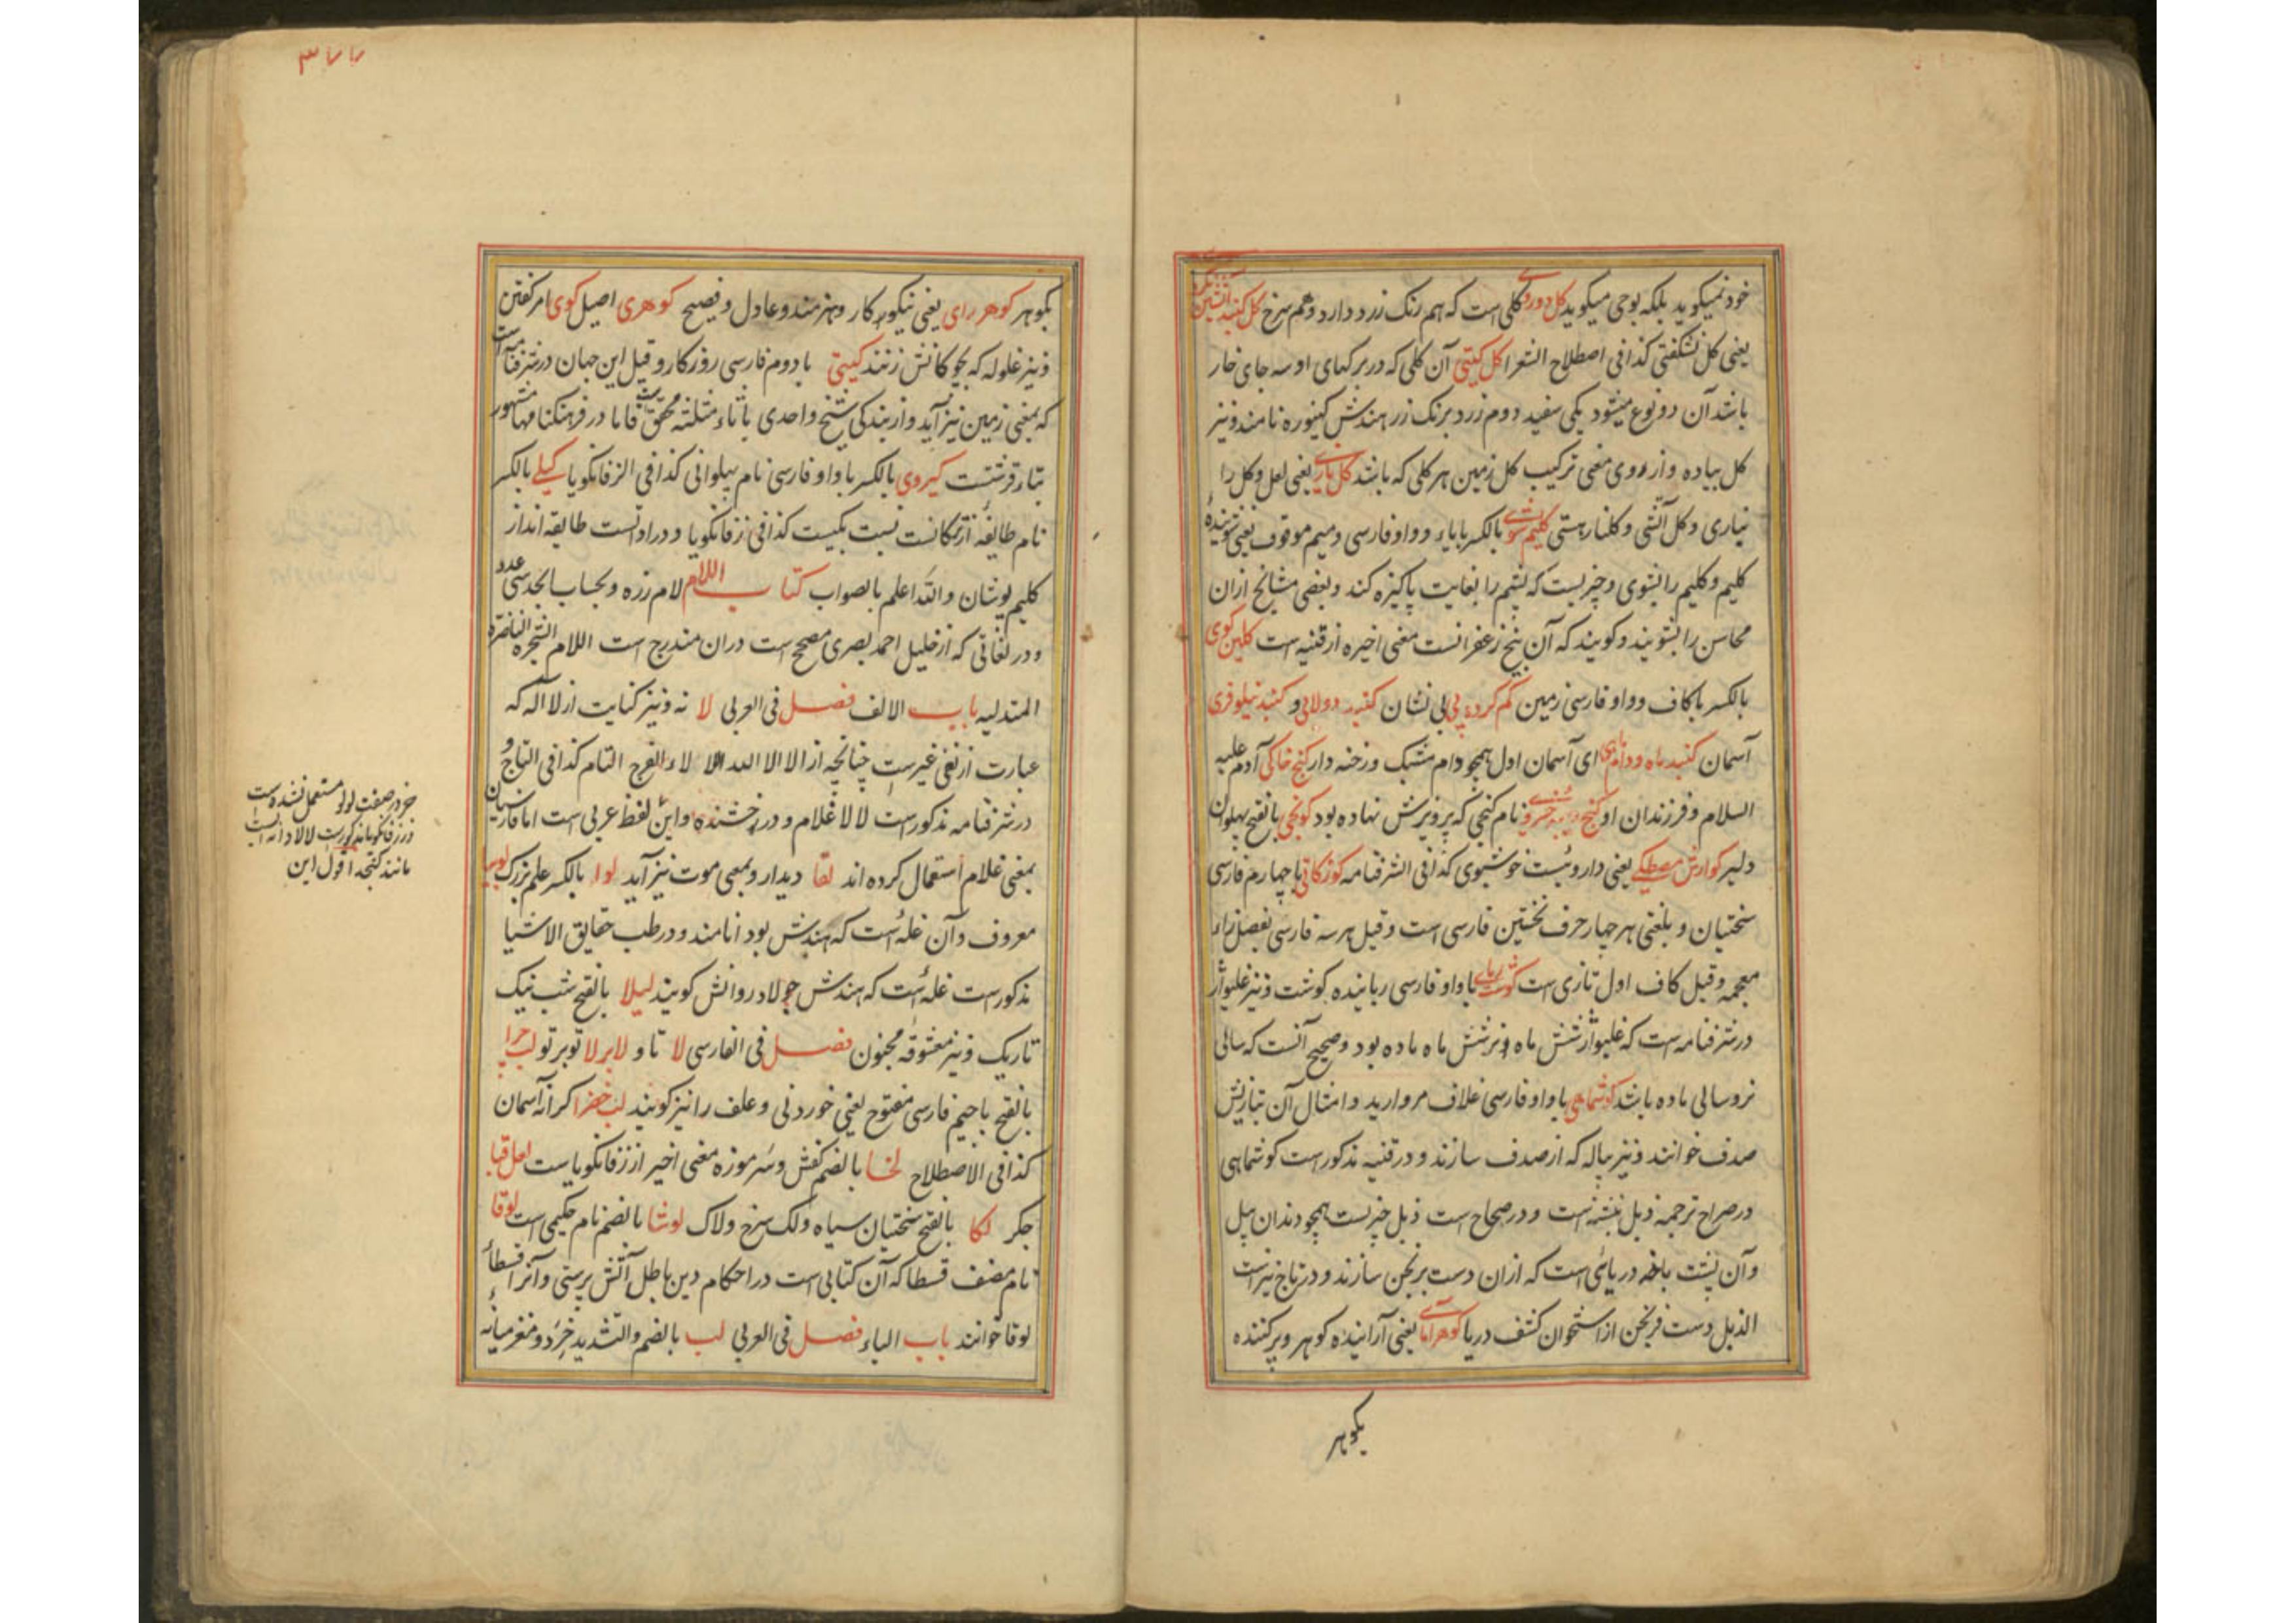 خود نمیکوید بلکه بوجی میکوید کل دوروی کلی است که هم رنک زرد دارد و هم سرخ کل کنبد
یعنی کل نشکفتی کذا فی اصطلاح الشعرا کل کیتی آن کلی که در برکهای او سه جای خار
باشد آن دو نوع میشود یکی سفید دوم زرد برنک زر هندش کیوره نامند و نیز
کل پیاده و از روی معنی ترکیب کل زمین هر کلی که باشد کل یعنی لعل و کل را
نیاری و کل آتشی و کلنار هستی کلیم شوی بالکسر بایاء و واو فارسی و میم موقوف یعنی شویندهٔ
کلیم و کلیم را بشوی و چیزیست که پشم را بغایت پاکیزه کند و بعضی مشایخ ازان
محاسن را بشویند و کویند که آن بیخ زعفرانست معنی اخیره از قنیه است کلین کوی
بالکسر با کاف و واو فارسی زمین کم کرده پی بی نشان کنبد دولابی و کنبد نیلوفری
آسمان کنبد ماه ای آسمان اول همچو دام مشبک و رخنه دار کنج خاکی آدم علیه
السلام و فرزندان او کنج نام کنجی که پرویزش نهاده بود کونجی بالفتح پهلوان
دلیر کوارش مصطکی یعنی داروئیست خوشبوی کذا فی الشرفنامه کوزکانی با چهارم فارسی
سختیان و بلغتی هر چهار حرف نخستین فارسی است و قیل هر سه فارسی بفصل زاء
معجمه و قیل کاف اول تازی است کوشت ربای با واو فارسی رباینده کوشت و نیز غلیواژ
در شرفنامه است که غلیواژ شش ماه نر و شش ماه ماده بود و صحیح آنست که سالی
نر و سالی ماده باشد کوشماهی با واو فارسی غلاف مروارید و امثال آن بتازیش
صدف خوانند و نیز پیاله که از صدف سازند و در قنیه مذکور است کوشماهی
در صراح ترجمه ذبل نبشته است و در صحاح است ذبل چیزیست همچو دندان پیل
و آن پشت باخه دریائی است که ازان دست برنجن سازند و در تاج نیز است
الذبل دست فرنجن از استخوان کشف دریا کوهر آمای یعنی آراینده کوهر و پر کننده
بکوهر
۳۷۷
بکوهر کوهر رای یعنی نیکور کار و هنرمند و عادل و فصیح کوهری اصیل کوی امر کفتن
و نیز غلوله که بچوکانش زنند کیتی با دوم فارسی روزکار و قیل این جهان در شرفنامه است
که بمعنی زمین نیز آید و از بندکی شیخ واحدی با ثاء مثلثه محقق فاما در فرهنکنامها مشهور
بتاء قرشتست کیروی بالکسر با واو فارسی نام پهلوانی کذا فی الزفانکویا کیلی بالکسر
نام طایفهٔ از ترکانست نسبت بکیست کذا فی زفانکویا و در اداتست طایقه اند از
کلیم پوشان و الله اعلم بالصواب کتاب اللام لام زره و بحساب ابجد سی عدد
و در لغاتی که از خلیل احمد بصری مصحح است دران مندرج است اللام الشجرة الناضرة
المتدلیه باب الالف فصل فی العربی لا نه و نیز کنایت از لا اله که
عبارت از نفی غیر است چنانچه از الا الا الله الا لاء الفرح التام کذا فی التاج و
در شرفنامه مذکور است لالا غلام و در رخشنده و این لفظ عربی است اما فارسیان
بمعنی غلام استعمال کرده اند لقا دیدار و بمعنی موت نیز آید لوا بالکسر علم بزرک لوبیا
معروف و آن غله است که هندش بود انامند و در طب حقایق الاشیا
مذکور است غله ئست که هندش چولا و روانش کویند لیلا بالفتح شب نیک
تاریک و نیز معشوقه مجنون فصل فی الفارسی لا تا و لا بر لا تو بر تو لب چرا
بالفتح با جیم فارسی مفتوح یعنی خوردنی و علف را نیز کویند لب خضرا کرانه آسمان
کذا فی الاصطلاح لخا بالضم کفش و سر موزه معنی اخیر از زفانکویا ست لعل قبا
جکر لکا بالفتح سختیان سیاه و لک سرخ و لاک لوشا بالضم نام حکیمی است لوقا
نام مصنف قسطا که آن کتابی است در احکام دین باطل آتش پرستی و آنرا قسطاء
لوقا خوانند باب الباء فصل فی العربی لب بالضم و التشدید خرد و مغز میانه
خر در صفت لولو مستعمل نشده است
در زفانکویا مذکور است لالا دانه ایست
مانند کنجد اقول این